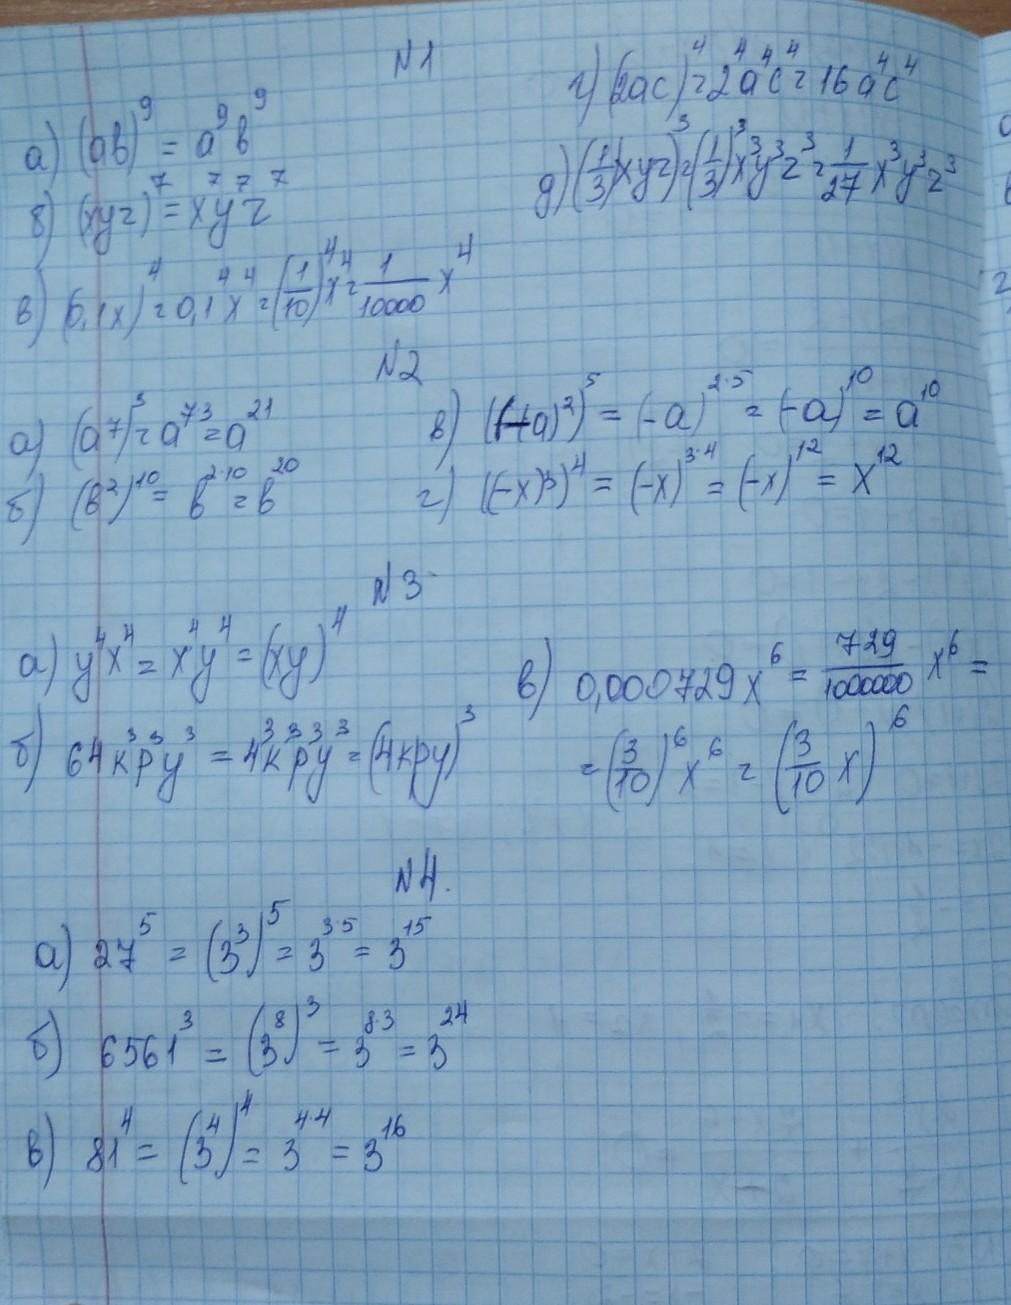 N1
а) (ab)⁹ = a⁹b⁹
б) (xyz)⁷ = x⁷y⁷z⁷
в) (0,1x)⁴ = 0,1⁴x⁴ = (1/10)⁴x⁴ = 1/10000 x⁴
г) (2ac)⁴ = 2⁴a⁴c⁴ = 16a⁴c⁴
д) (1/3 xyz)³ = (1/3)³x³y³z³ = 1/27 x³y³z³
N2
а) (a⁷)³ = a⁷³ = a²¹
б) (b²)¹⁰ = b²·¹⁰ = b²⁰
в) ((-a)²)⁵ = (-a)²·⁵ = (-a)¹⁰ = a¹⁰
г) ((-x)³)⁴ = (-x)³·⁴ = (-x)¹² = x¹²
N3
а) y⁴x⁴ = x⁴y⁴ = (xy)⁴
б) 64k³p³y³ = 4³k³p³y³ = (4kpy)³
в) 0,000729x⁶ = 729/1000000 x⁶ =
= (3/10)⁶x⁶ = (3/10 x)⁶
N4.
а) 27⁵ = (3³)⁵ = 3³·⁵ = 3¹⁵
б) 6561³ = (3⁸)³ = 3⁸·³ = 3²⁴
в) 81⁴ = (3⁴)⁴ = 3⁴·⁴ = 3¹⁶